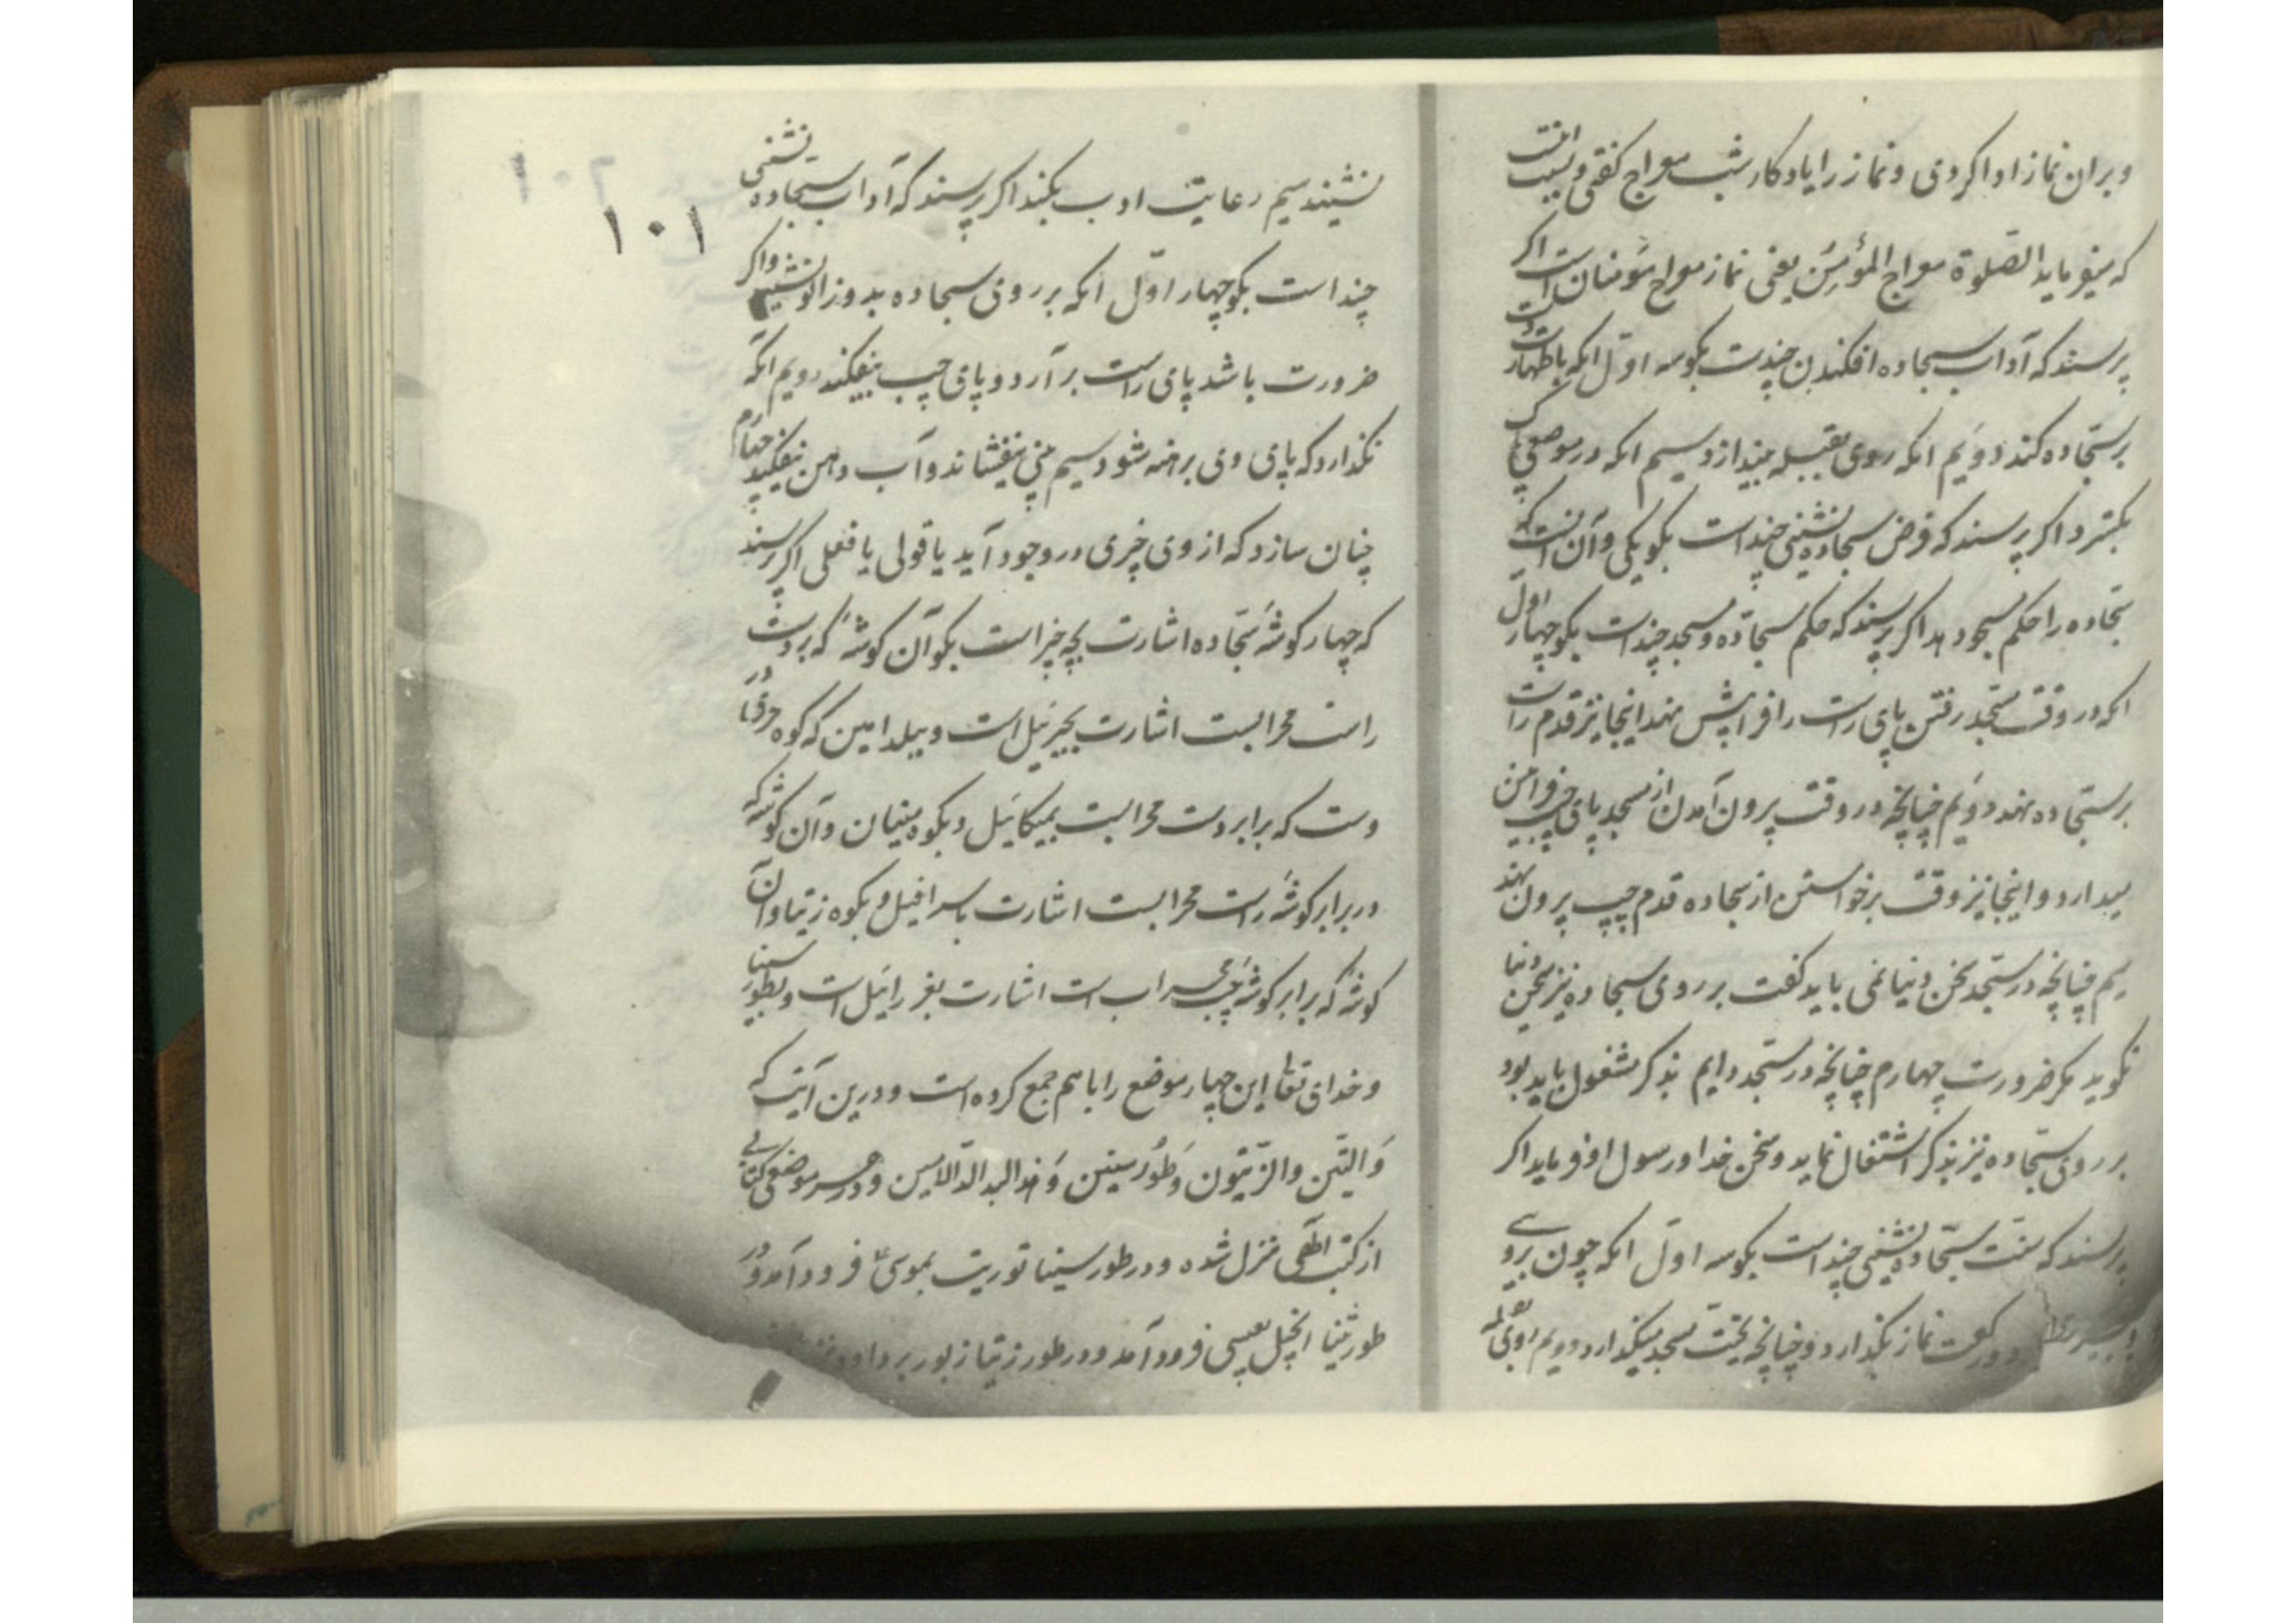 و بران نماز ادا کردی و نماز را یادکار شب معراج کفتی و بسبب انست
که میفرماید الصلوة معراج المؤمن یعنی نماز معراج مؤمنان است اکر
پرسند که آداب سجاده افکندن چندست بکو سه اول انکه باطهارت دست
بر سجاده کند دویم انکه روی بقبله بیندازد سیم انکه در موضعی پاک
بکسترد اکر پرسند که فرض سجاده نشینی چند است بکو یکی و آن انست که
سجاده را حکم مسجد دهد اکر پرسند که حکم سجاده و مسجد چند است بکو چهار اول
انکه در وقت مسجد رفتن پای راست را فراپیش نهد اینجا نیز قدم راست
بر سجاده نهد دویم چنانچه در وقت بیرون آمدن از مسجد پای چپ
بیدارد و اینجا نیز وقت برخواستن از سجاده قدم چپ بیرون نهد
سیم چنانچه در مسجد سخن دنیا نمی باید کفت بر روی سجاده نیز سخن دنیا
نکوید مکر ضرورت چهارم چنانچه در مسجد دایم بذکر مشغول باید بود
بر روی سجاده نیز بذکر اشتغال نماید و سخن خدا و رسول او فرماید اکر
پرسند که سنت سجاده نشینی چند است بکو سه اول انکه چون بروی
دو رکعت نماز بکذارد و چنانچه تحیت مسجد میکذارد دویم
۱۰۱
نشیند سیم رعایت ادب بکند اکر پرسند که آداب سجاده نشینی
چند است بکو چهار اول انکه بر روی سجاده بدو زانو نشیند و اکر
ضرورت باشد پای راست بر آرد و پای چپ بیفکند دویم انکه
نکذارد که پای وی برهنه شود سیم بینی نیفشاند و آب دهن نیفکند چهارم
چنان سازد که از وی خیری در وجود آید یا قولی یا فعلی اکر پرسند
که چهار کوشهٔ سجاده اشارت بچه چیز است بکو آن کوشه که بر دست
راست محرابست اشارت بجبرئیل است و ببلد امین که کوه
دست که برابر دست محرابست بمیکائیل و بکوه و آن کوشه که
در برابر کوشهٔ راست محرابست اشارت باسرافیل و بکوه زیتا و آن
کوشه که برابر کوشهٔ چپ محراب است اشارت بعزرائیل است و بطور سینا
و خدای تعالی این چهار موضع را باهم جمع کرده است و درین آیت که
وَ التین و الزیتون وَ طُور سینین وَ هذا البلد الامین و در هر موضعی کتابی
از کتب الهی منزل شده و در طور سینا توریت بموسی فرود آمد و در
طور ثینا انجیل بعیسی فرود آمد و در طور زیتا زبور بر داود